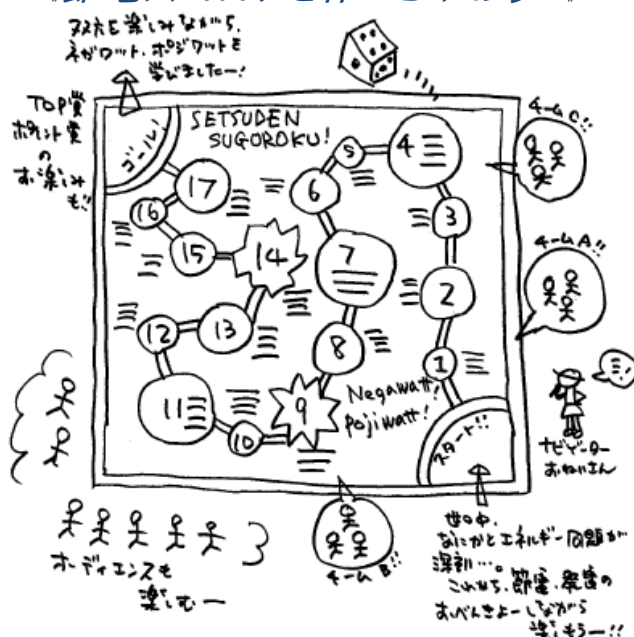 双六を楽しみながら、
ネガワット、ポジワットを
学びましたー!
TOP賞
ポイント賞
の
お楽しみ
も!!
ゴール!
SETSUDEN
SUGOROKU!
17
16
15
14
13
12
11
10
9
8
7
6
5
4
3
2
1
Negawatt!
Pojiwatt!
スタート!!
チームC!!
チームA!!
三!
ナビゲーター
おねいさん
チームB!!
オーディエンスも
楽しむー
世の中、
なにかとエネルギー問題が
深刻…。
これから、節電、発電の
おべんきょーしながら
楽しもうー!!